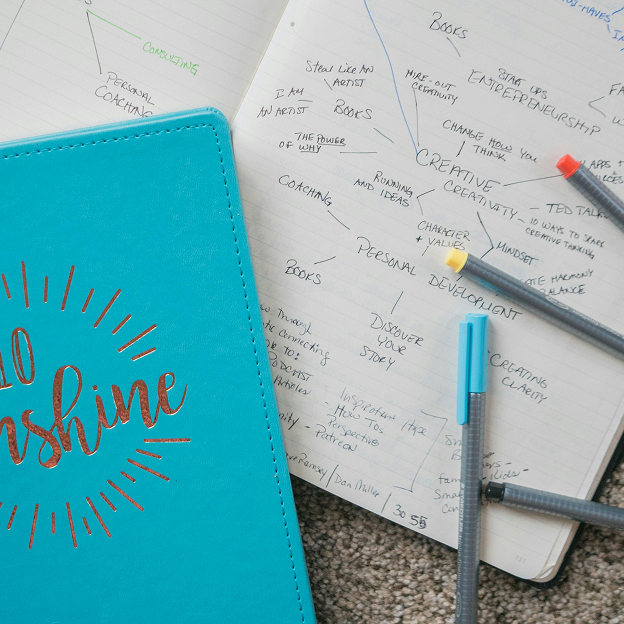 CONSULTING
PERSONAL
COACHING
10
nshine
BOOKS
START UPS
ENTREPRENEURSHIP
STEAL LIKE AN
ARTIST
I AM
AN ARTIST
BOOKS
MIRE-OUT
CREATIVITY
THE POWER
OF WHY
CHANGE HOW YOU
THINK
CREATIVE
CREATIVITY
APPS +
COACHING
RUNNING
AND IDEAS
TED TALKS
10 WAYS TO SPARK
CREATIVE THINKING
CHARACTER
+ VALUES
MINDSET
HARMONY
BALANCE
PERSONAL DEVELOPMENT
BOOKS
DISCOVER
YOUR
STORY
CREATING
CLARITY
Through
Connecting
TO:
PODCAST
Articles
Patreon
Inspiration
- HOW TOs
Perspective
Ramsey / Dan Miller /
30
Kids -